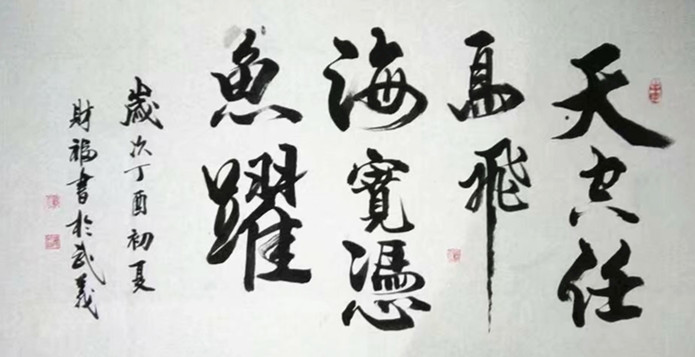 天空任
鳥飛
海寬憑
魚躍
歲次丁酉初夏
財福書於武義